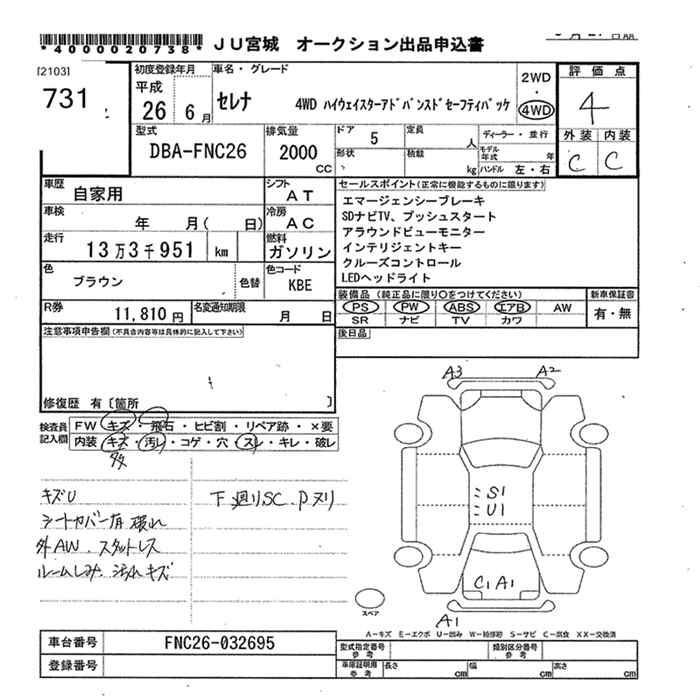 *4000020738* JU宮城 オークション出品申込書
[2103]
731
初度登録年月 車名・グレード
平成
26 6月
セレナ 4WD ハイウェイスターアドバンスドセーフティパッケ
2WD
・
4WD
評価点
4
外装 内装
C C
型式 排気量 ドア 定員 ディーラー・並行
DBA-FNC26 2000 CC 5 人
形状 積載 kg
モデル年式 年
ハンドル 左・右
車歴 自家用 シフト AT
車検 年 月( 日) 冷房 AC
走行 13万3千951 km 燃料 ガソリン
色 ブラウン 色替 色コード KBE
R券 11,810円 名変通知期限 月 日
セールスポイント(正常に機能するものに限ります)
エマージェンシーブレーキ
SDナビTV、プッシュスタート
アラウンドビューモニター
インテリジェントキー
クルーズコントロール
LEDヘッドライト
装備品(純正品に限り○をつけてください) 新車保証書
PS PW ABS エアB AW 有・無
SR ナビ TV カワ
後日品
注意事項申告欄(不具合内容等は具体的に記入して下さい)
修復歴 有〔箇所 〕
検査員記入欄
FW キズ・飛石・ヒビ割・リペア跡・×要
内装 キズ・汚レ・コゲ・穴・スレ・キレ・破レ
キズU
シートカバー有 破れ
外AW、スタットレス
ルームしみ、汚れキズ
下廻りSC、Pヌリ
A3 A2
S1
U1
C1 A1
A1
スペア
A-キズ E-エクボ U-凹み W-補修跡 S-サビ C-腐食 XX-交換済
車台番号 FNC26-032695
登録番号
型式指定番号 参考 類別区分番号 参考
車庫証明用 参考 長さ cm 幅 cm 高さ cm